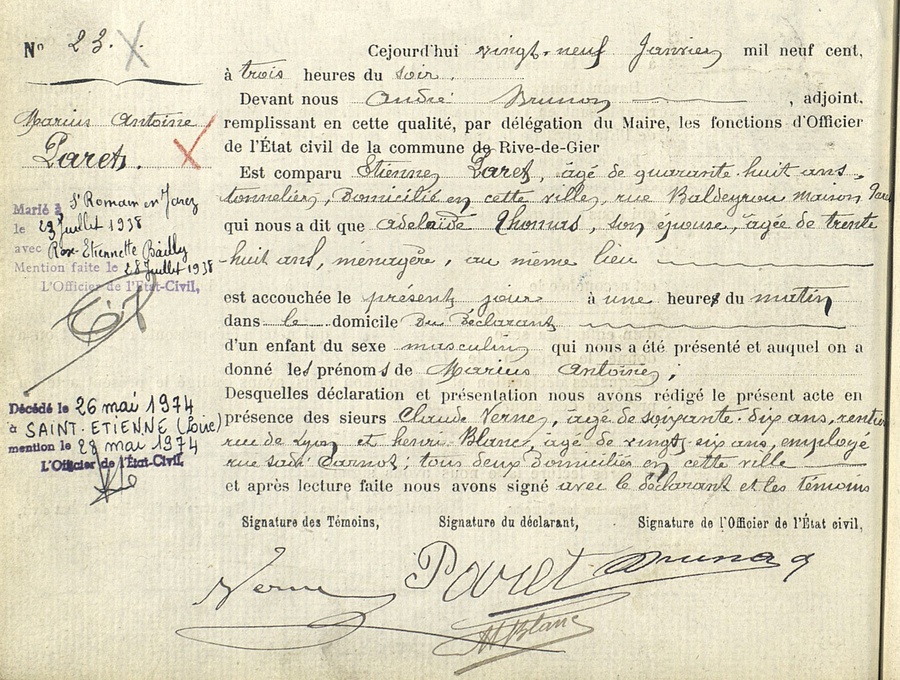 N° 23.
Marius Antoine
Paret.
Marié à St Romain en Jarez
le 23 juillet 1938
avec Rose Etiennette Bailly
Mention faite le 28 Juillet 1938
L'Officier de l'Etat-Civil,
Décédé le 26 mai 1974
à SAINT-ETIENNE (Loire)
mention le 28 mai 1974
L'Officier de l'État-Civil,
Cejourd'hui vingt-neuf Janvier mil neuf cent,
à trois heures du soir.
Devant nous André Brunon, adjoint.
remplissant en cette qualité, par délégation du Maire, les fonctions d'Officier
de l'État civil de la commune de Rive-de-Gier
Est comparu Etienne Paret, âgé de quarante-huit ans,
tonnelier, domicilié en cette ville, rue Baldeyrou maison Paret
qui nous a dit que Adelaïde Thomas, son épouse, âgée de trente
huit ans, ménagère, au même lieu
est accouchée le présent jour à une heure du matin
dans le domicile du déclarant
d'un enfant du sexe masculin qui nous a été présenté et auquel on a
donné les prénoms de Marius Antoine;
Desquelles déclaration et présentation nous avons rédigé le présent acte en
présence des sieurs Claude Verne, âgé de soixante-dix ans, rentier
rue de Lyon et henri Blanc, âgé de vingt-six ans, employé
rue Sadi Carnot; tous deux domiciliés en cette ville
et après lecture faite nous avons signé avec le déclarant et les témoins
Signature des Témoins, Signature du déclarant, Signature de l'Officier de l'État civil,
Verne Paret Brunon
H Blanc